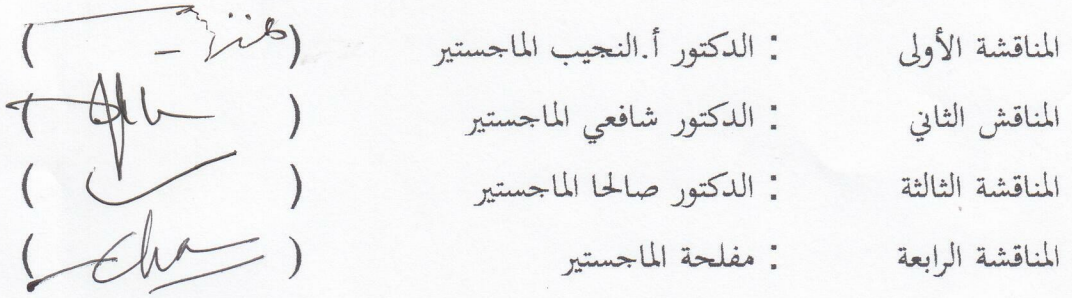 المناقشة الأولى : الدكتور أ.النجيب الماجستير ( )
المناقش الثاني : الدكتور شافعي الماجستير ( )
المناقشة الثالثة : الدكتور صالحا الماجستير ( )
المناقشة الرابعة : مفلحة الماجستير ( )